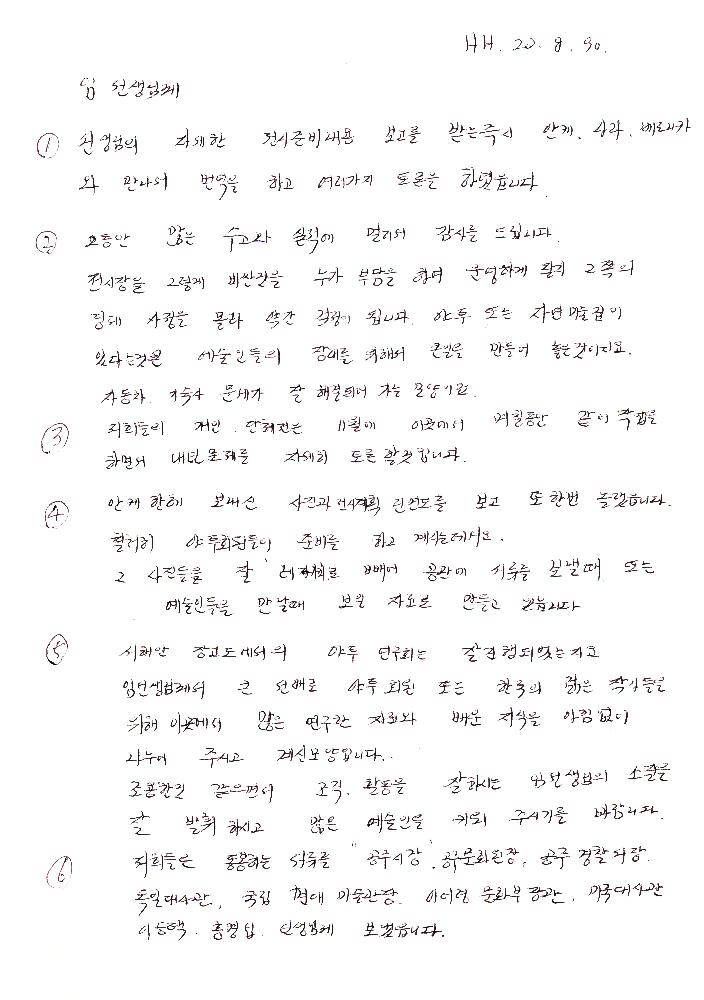 HH. 20. 8. 90.
임 선생님께
① 선생님의 자세한 전시준비내용 보고를 받는즉시 안케, 사라, 베로니카
와 만나서 번역을 하고 여러가지 토론을 하였습니다.
② 그동안 많은 수고와 실력에 멀리서 감사를 드립니다.
전시장을 그렇게 비싼것을 누가 부담을 하며 운영하게 될지 그쪽의
형편 사정을 몰라 약간 걱정이 됩니다. 야투 또는 자연미술집이
있다는것은 예술인들의 장래를 위해서 큰일을 만들어 놓은것이지요.
자동차, 기숙사 문제가 잘 해결되어 가는 모양이죠.
③ 저희들의 개인, 단체전는 11월에 이곳에서 며칠동안 같이 작업을
하면서 내년문제를 자세히 토론할것입니다.
④ 안케한테 보내신 사진과 전시계획 팜플렛도를 보고 또한번 놀랬습니다.
철저히 야투회원들이 준비를 하고 계시는데서요.
그 사진들을 잘 빼어 공관에 서류를 보낼때 또는
예술인들을 만날때 보일 자료로 만들고 있습니다
⑤ 서해안 장고도에서의 야투 연구회는 잘진행되었는지요
임선생님께서 큰 선배로 야투회원 또는 한국의 젊은 작가들을
위해 이곳에서 많은 연구한 자료와 배운 지식을 아낌없이
나누어 주시고 계신모양입니다.
조용한것 같으면서 조직, 활동을 잘하시는 임선생님의 소질을
잘 발휘하시고 많은 예술인을 키워 주시기를 바랍니다.
⑥ 저희들은 동봉하는 서류를 "공주시장, 공주문화원장, 공주 경찰서장,
독일대사관, 국립 현대 미술관장, 이어령 문화부장관, 미국대사관
이동택, 홍명섭, 선생님께 보냈습니다.